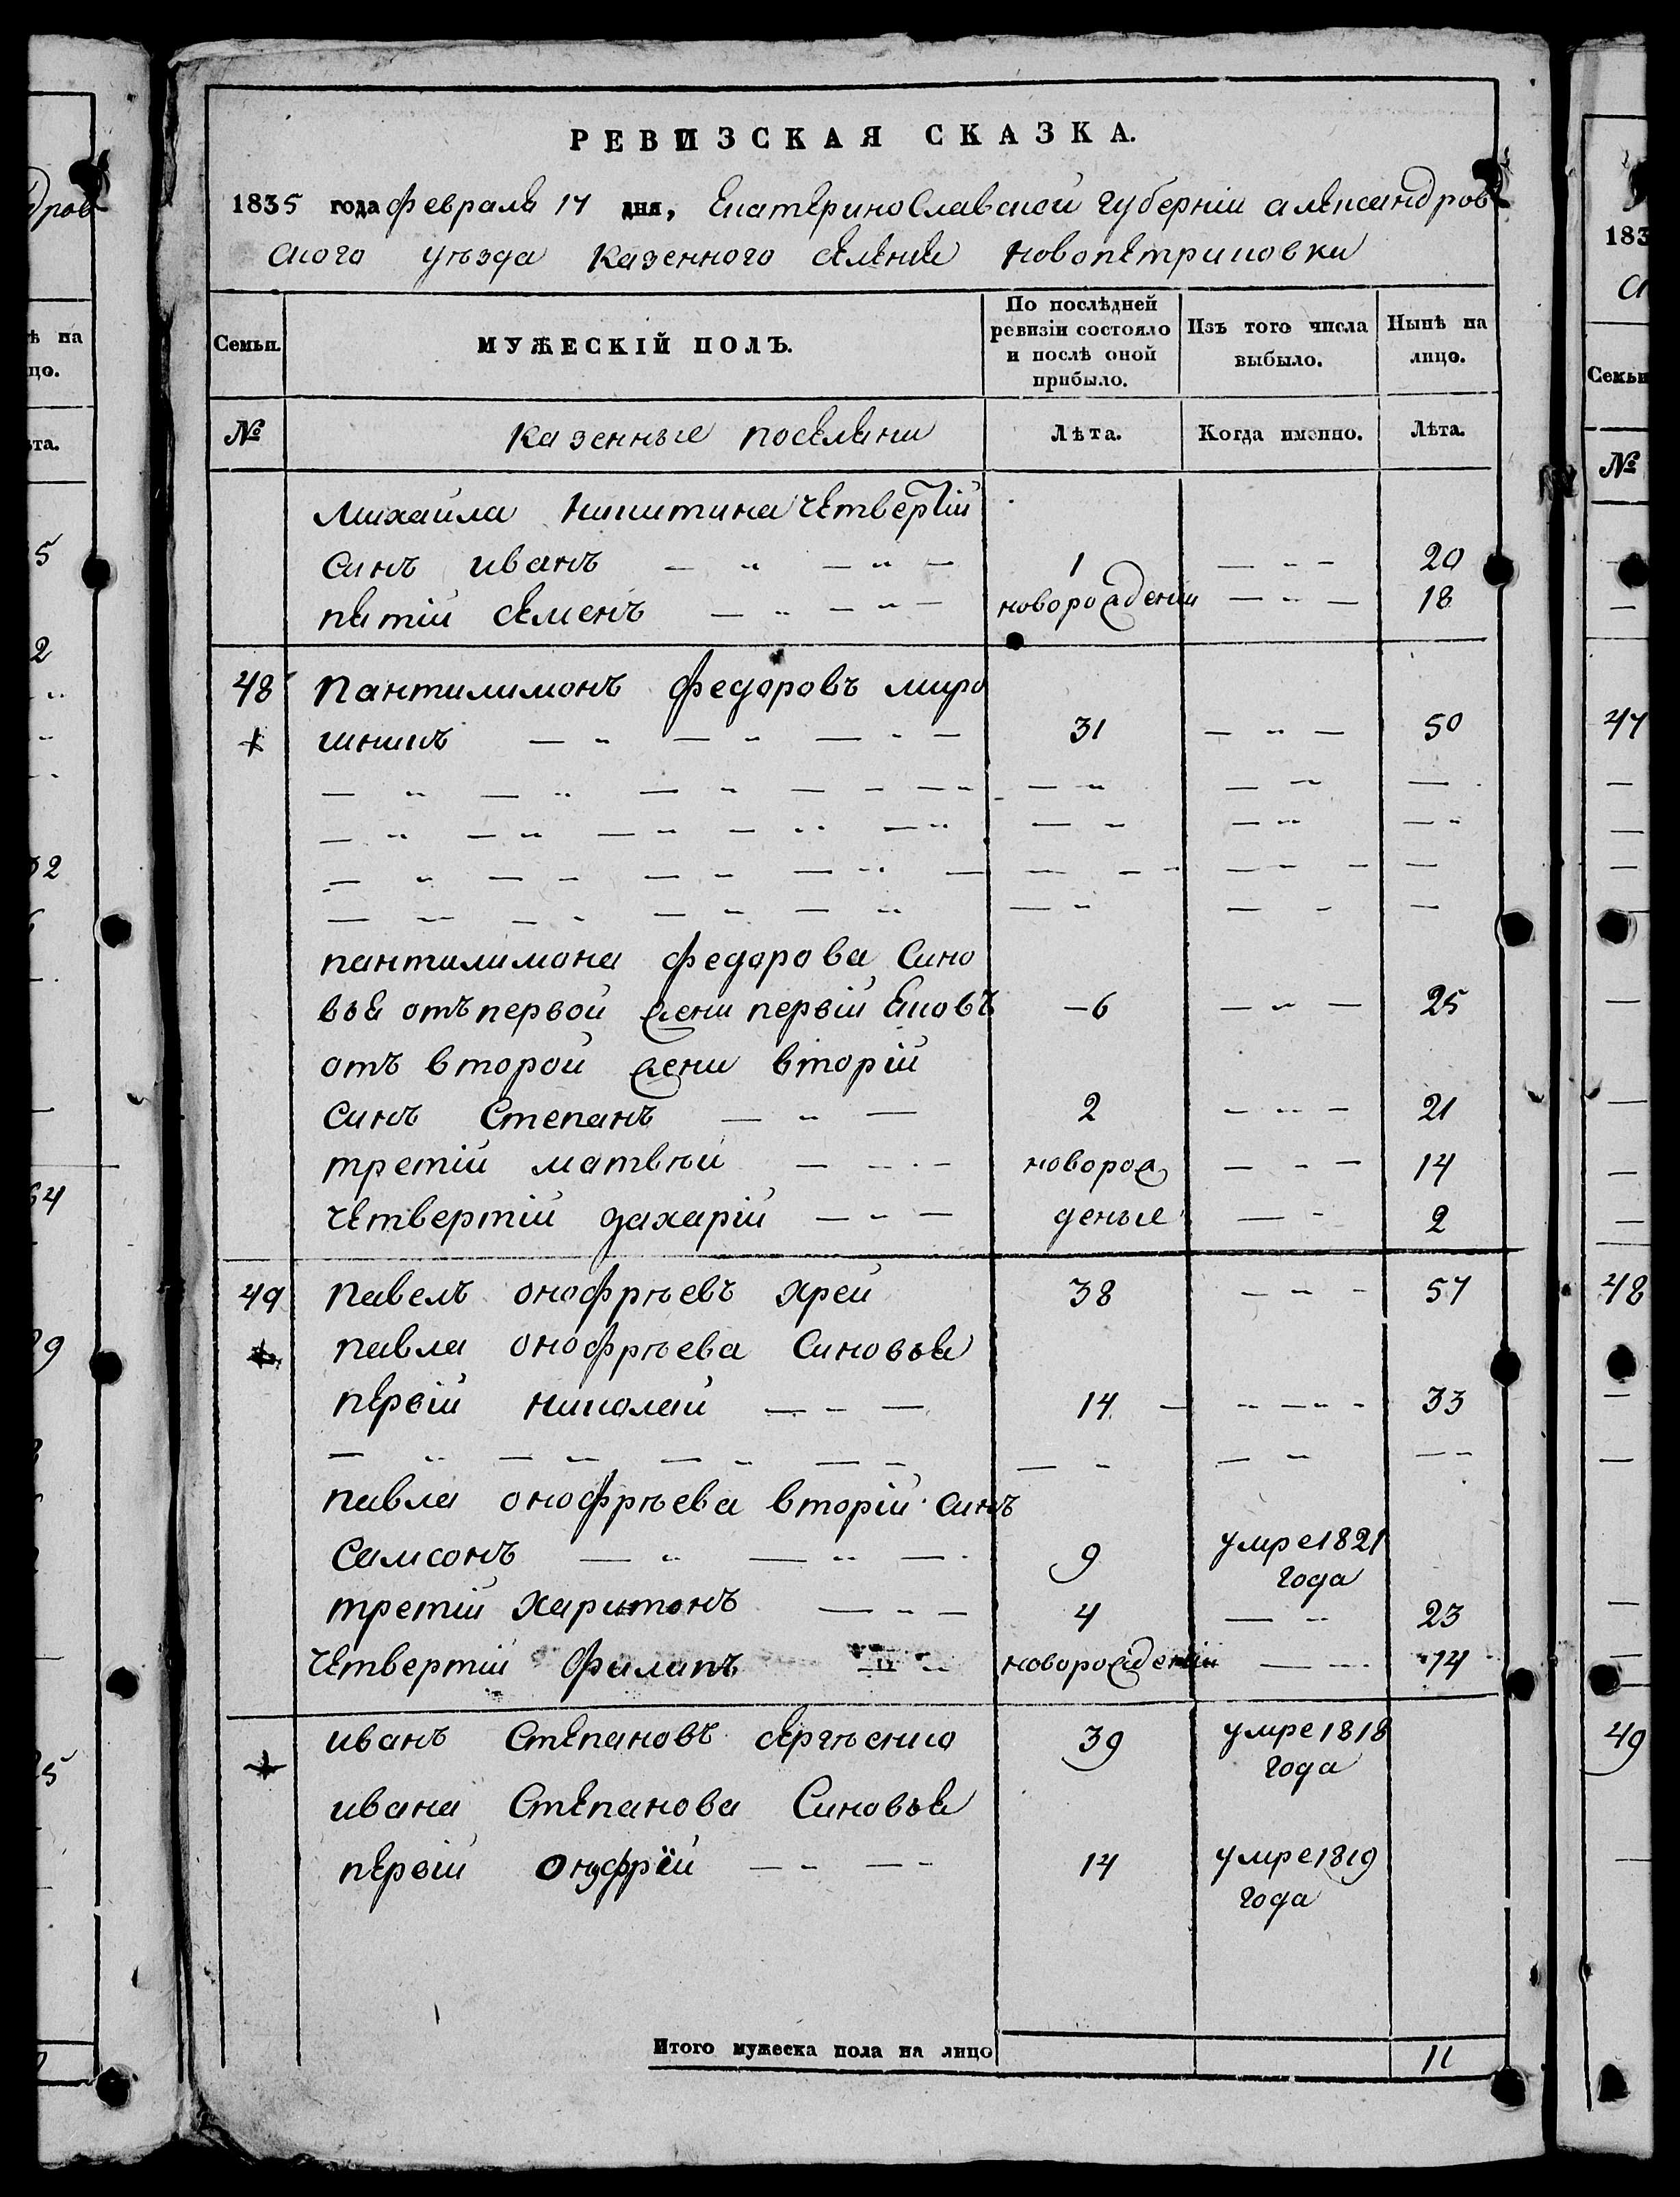 РЕВИЗСКАЯ СКАЗКА.
1835 года февраля 17 дня, Екатеринославской губерніи александров
ского уѣзда казенного селенія новопетриковки
Семьи.
МУЖЕСКІЙ ПОЛЪ.
По послѣдней ревизіи состояло и послѣ оной прибыло.
Изъ того числа выбыло.
Нынѣ на лицо.
№ казенные поселяни Лѣта. Когда именно. Лѣта.
михайла никитина четвертій
синъ иванъ — „ — „ — 1 — „ — 20
пятій семенъ — „ — „ — новорожденій — „ — 18
48 пантилимонъ федоровъ миро
шникъ — „ — „ — „ — 31 — „ — 50
пантилимона федорова сино
вья отъ первой жени первій яковъ — 6 — „ — 25
отъ второй жени вторій
синъ степанъ — „ — 2 — „ — 21
третій матвѣй — „ — новорож — „ — 14
четвертій захарій — „ — деные — „ 2
49 павелъ онофрѣевъ хрей 38 — „ — 57
павла онофрѣева синовья
первій николай — „ — 14 — „ — „ — 33
павла онофрѣева вторій синъ
самсонъ — „ — „ — 9 умре 1821
года
третій харитонъ — „ — 4 — „ 23
четвертій филипъ — „ новорожденій — „ 14
иванъ степановъ сергѣенко 39 умре 1818
года
ивана степанова синовья
первій онуфрій — „ — „ 14 умре 1819
года
Итого мужеска пола на лицо 11